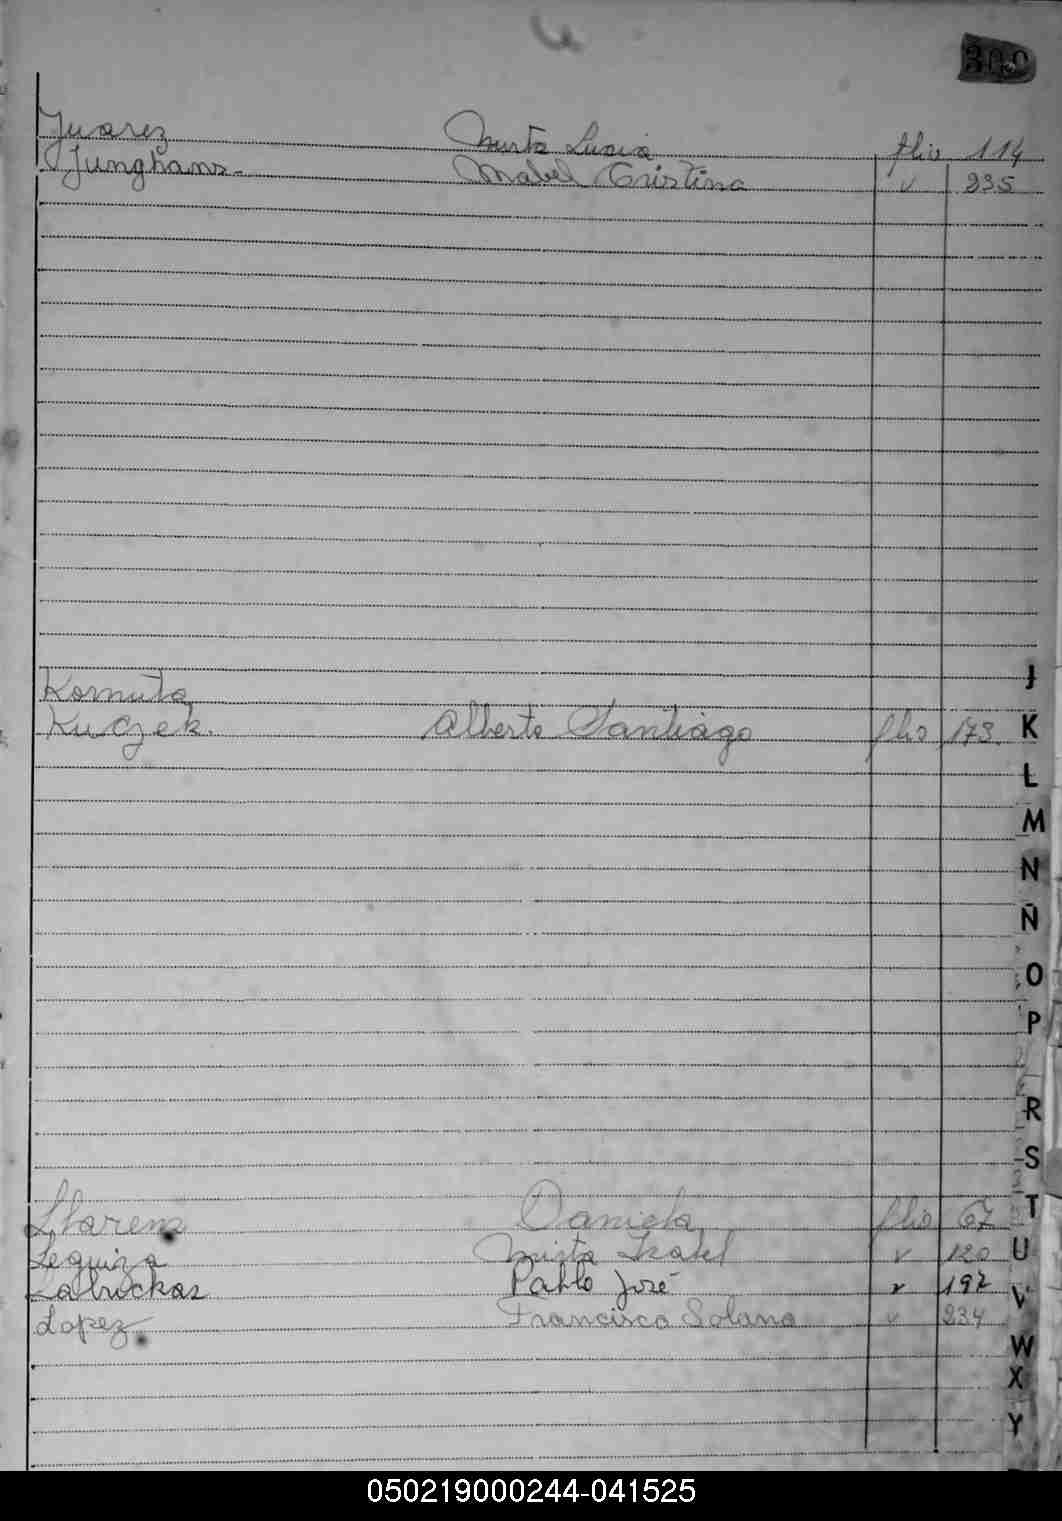 300
Juarez Mirta Lucia flio 114
Junghans- Mabel Cristina v 235
Komuta
Kuczek. Alberto Santiago flio 173.
Llarena Daniela flio 67
Leguiza Mirta Isabel v 120
Labuckas Pablo José v 192
Lopez Francisco Solano v 234
J
K
L
M
N
Ñ
O
P
R
S
T
U
V
W
X
Y
050219000244-041525